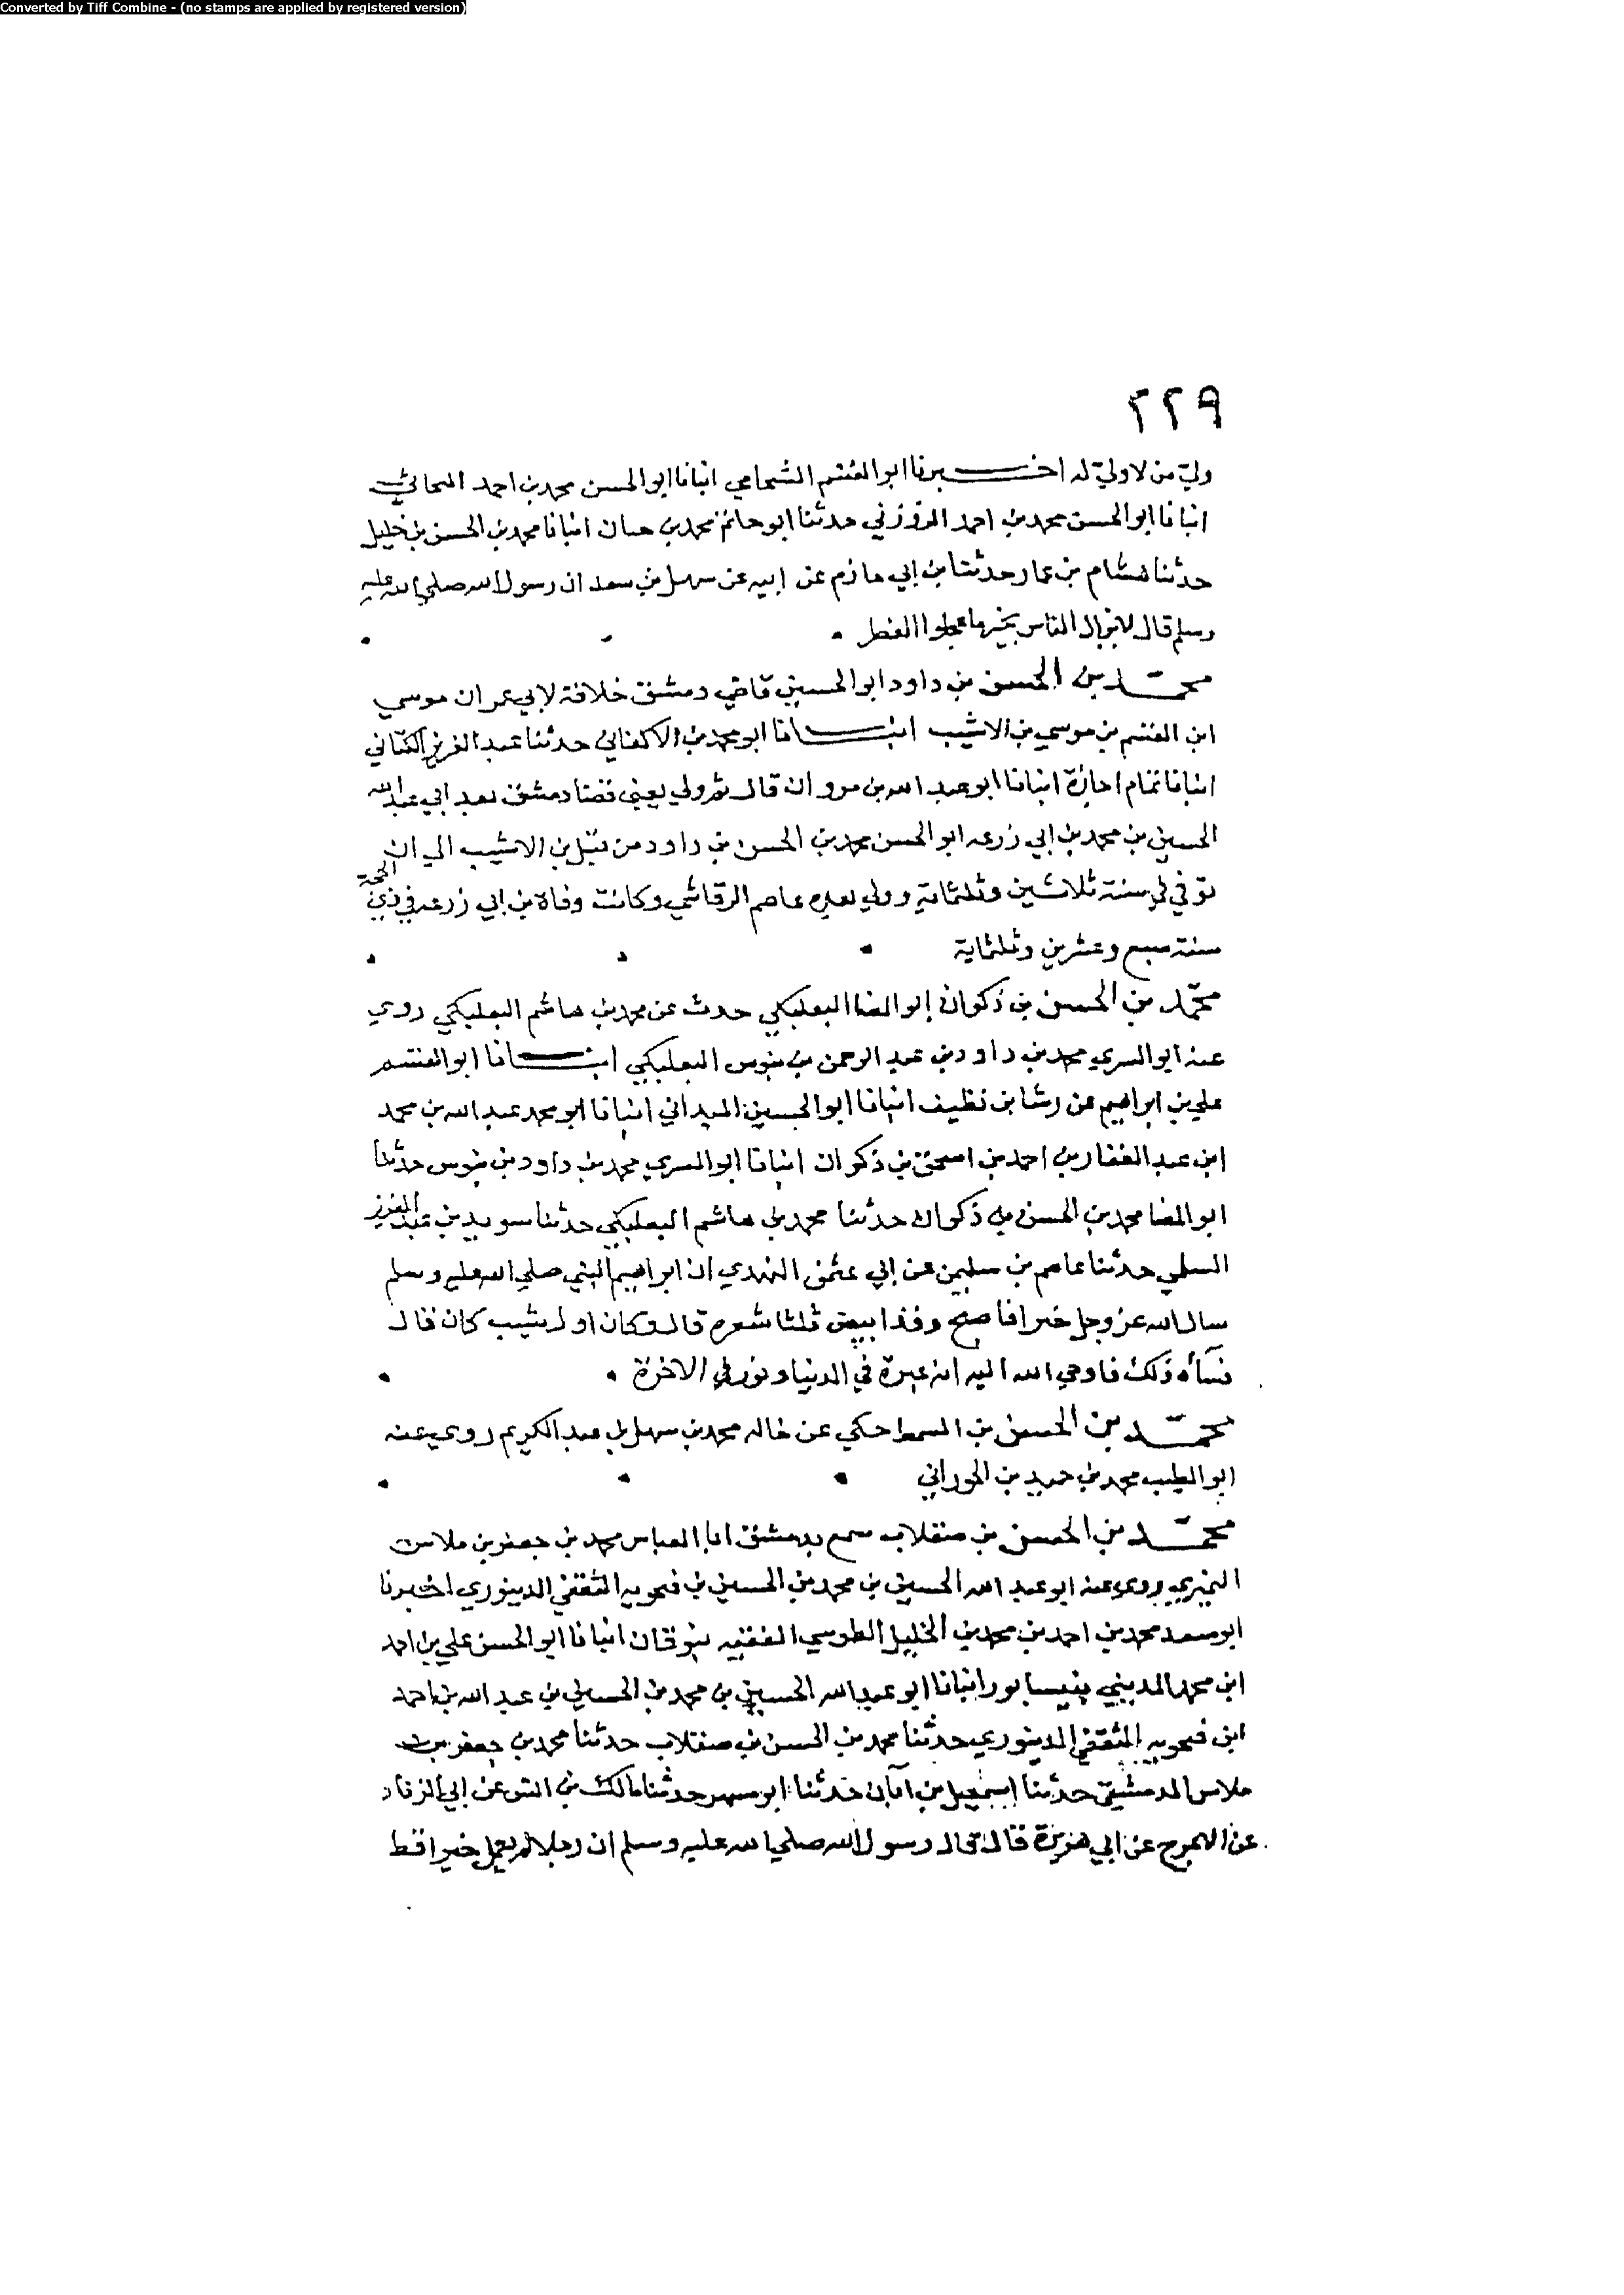 Converted by Tiff Combine - (no stamps are applied by registered version)
٢٢٩
ولي من لا ولي له اخبرنا ابو القسم الشحامي انبانا ابو الحسن محمد بن احمد
انبانا ابو الحسن محمد بن احمد الزوزني حدثنا ابو حاتم محمد بن حبان انبانا محمد بن الحسن بن خليل
حدثنا هشام بن عمار حدثنا بن ابي حازم عن ابيه عن سهل بن سعد ان رسول الله صلي الله عليه
وسلم قال لا يزال الناس بخير ما عجلوا الفطر
محمد بن الحسن بن داود ابو الحسين قاضي دمشق خلافة لابي عمران موسي
ابن القسم بن موسي بن الاشيب انبانا ابو محمد بن الاكفاني حدثنا عبد العزيز الكتاني
انبانا تمام اجازة انبانا ابو عبد الله بن مروان قال ثم ولي يعني قضا دمشق بعد ابي عبد الله
الحسين بن محمد بن ابي زرعه ابو الحسن محمد بن الحسن بن داود من قبل بن الاشيب الي ان
توفي في سنة ثلاثين وثلثماية وولي بعده عاصم الرقاشي وكانت وفاة بن ابي زرعه في ذي الحجة
سنة سبع وعشرين وثلثماية
محمد بن الحسن بن ذكوان ابو المضا البعلبكي حدث عن محمد بن هاشم البعلبكي روي
عنه ابو السري محمد بن داود بن عبد الرحمن بن بنوس البعلبكي انبانا ابو القسم
علي بن ابراهيم عن رشا بن نظيف انبانا ابو الحسين الميداني انبانا ابو محمد عبد الله بن محمد
ابن عبد الغفار بن احمد بن اسحق بن ذكوان انبانا ابو السري محمد بن داود بن بنوس حدثنا
ابو المضا محمد بن الحسن بن ذكوان حدثنا محمد بن هاشم البعلبكي حدثنا سويد بن عبد العزيز
السلمي حدثنا عاصم بن سليمن عن ابي عثمن النهدي ان ابراهيم النبي صلي الله عليه وسلم
سال الله عز وجل خيرا فاصبح وقد ابيض ثلثا شعره قال وكان اول شيب كان قال
فسآه ذلك فاوحي الله اليه انه عبرة في الدنيا ونور في الاخرة
محمد بن الحسن بن السمط حكي عن خاله محمد بن سهل بن عبد الكريم روي عنه
ابو الطيب محمد بن حميد بن الحوراني
محمد بن الحسن بن صقلاب سمع بدمشق ابا العباس محمد بن جعفر بن ملاس
النميري روي عنه ابو عبد الله الحسين بن محمد بن الحسين بن فنجويه الثقفي الدينوري اخبرنا
ابو سعد محمد بن احمد بن محمد بن الخليل الطوسي الفقيه بنوقان انبانا ابو الحسن علي بن احمد
ابن محمد المديني بنيسابور انبانا ابو عبد الله الحسين بن محمد بن الحسين بن عبد الله بن احمد
ابن فنجويه الثقفي الدينوري حدثنا محمد بن الحسن بن صقلاب حدثنا محمد بن جعفر بن
ملاس الدمشقي حدثنا اسمعيل بن ابان حدثنا ابو مسهر حدثنا مالك بن انس عن ابي الزناد
عن الاعرج عن ابي هريرة قال قال رسول الله صلي الله عليه وسلم ان رجلا لم يعمل خيرا قط